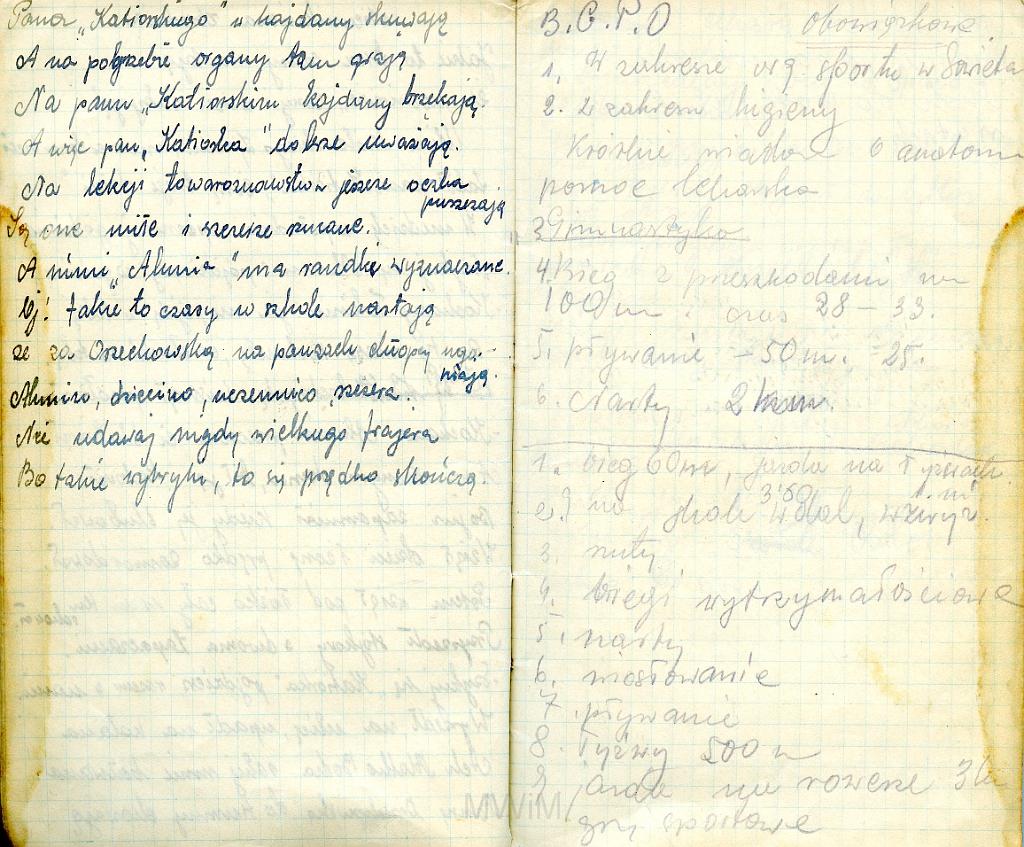 Pana „Katiorskiego" w kajdany skuwają
A na pogrzebie organy tam grają
Na panu „Katiorskim kajdany brzękają.
A więc pan „Katiorka" dobrze uważają.
Na lekcji towaroznawstwa jeszcze oczka
puszczają
Są one miłe i szczerze znane.
A nimi „Alunia" ma randkę wyznaczone.
Oj! takie to czasy w szkole nastają
że za Orzechowską na pauzach chłopcy uga-
niają.
Aluniu, dziecino, uczennico szczera.
Nie udawaj nigdy wielkiego frajera
Bo takie wybryki, to się prędko skończą.
B.G.P.O obowiązkowe
1. W zakresie org. sportu w Sowieta
2. z zakresu higieny
Krótkie wiadom o anatom
pomoc lekarska
3 Gimnastyka
4. Bieg z przeszkodami na
100 m. oraz 28 - 33.
5. pływanie - 50 m. 25.
6. Narty 2 km.
1. bieg 60 m, jazda na łyżwach.
2. skok w dal, wzwyż.
3'50
3. rzuty
4. biegi wytrzymałościowe
5. narty
6. wiosłowanie
7. pływanie
8. Łyżwy 500 m
9 jazda na rowerze 3 km
gry sportowe
MWiM